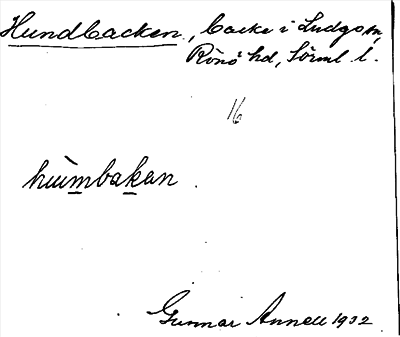 Hundbacken, backe i Ludgo sn,
Rönö hd, Sörml. l.
16
hùmbakan.
Gunnar Annell 1932